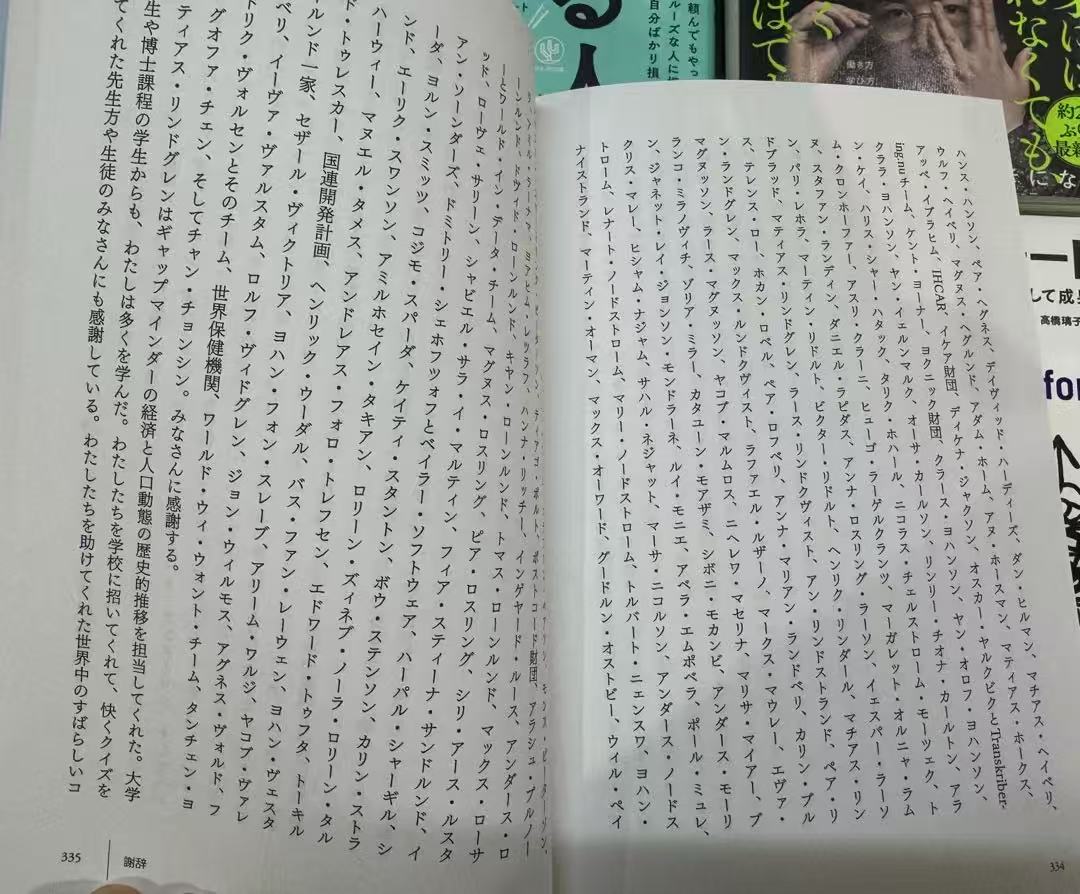 ハンス・ハンソン、ペア・ヘグネス、デイヴィッド・ハーディーズ、ダン・ヒルマン、マチアス・ヘイベリ、
ウルフ・ヘイベリ、マグヌス・ヘグルンド、アダム・ホーム、アヌ・ホースマン、マティアス・ホークス、
アッベ・イブラヒム、IHCAR、イケア財団、ディケナ・ジャクソン、オスカー・ヤルクビクとTranskriber-
ing.nuチーム、ケント・ヨーナー、ヨクニック財団、クラース・ヨハンソン、ヤン・オロフ・ヨハンソン、
クララ・ヨハンソン、ヤン・イェルンマルク、オーサ・カールソン、リンリー・チオナ・カールトン、アラ
ン・ケイ、ハリス・シャー・ハタック、タリク・ホハール、ニコラス・チェルストローム・モーツェク、ト
ム・クロンホーファー、アスリ・クラーニ、ヒューゴ・ラーゲルクランツ、マーガレット・オルニャ・ラム
ヌ、スタファン・ランディン、ダニエル・ラピダス、アンナ・ロスリング・ラーソン、イェスパー・ラーソ
ン、パリ・レホラ、マーティン・リドルト、ビクター・リドルト、ヘンリク・リンダール、マチアス・リン
ドブラッド、マティアス・リンドグレン、ラース・リンドクヴィスト、アン・リンドストランド、ペア・リ
ス、テレンス・ロー、ホカン・ロベル、ペア・ロフベリ、アンナ・マリアン・ランドベリ、カリン・ブル
ン・ランドグレン、マックス・ルンドクヴィスト、ラファエル・ルザーノ、マークス・マウレー、エヴァ・
マグヌッソン、ラース・マグヌッソン、ヤコブ・マルムロス、ニヘレワ・マセリナ、マリサ・マイアー、ブ
ランコ・ミラノヴィチ、ゾリア・ミラー、カタユーン・モアザミ、シボニ・モカンビ、アンダース・モーリ
ン、ジャネット・レイ・ジョンソン・モンドラーネ、ルイ・モニエ、アベラ・エムポベラ、ポール・ミュレ、
クリス・マレー、ヒシャム・ナジャム、サハル・ネジャット、マーサ・ニコルソン、アンダース・ノードス
トローム、レナート・ノードストローム、マリー・ノードストローム、トルバート・ニェンスワ、ヨハン・
ナイストランド、マーティン・オーマン、マックス・オーワード、グードルン・オストビー、ウィル・ペイ
334
ーンルンド、ドヴィド・ローンルンド、キャン・ローンルンド、トマス・ローンルンド、マックス・ローサ
ーとワールド・イン・データ・チーム、マグヌス・ロスリング、ピア・ロスリング、シリ・アース・ルスタ
ッド、ローヴェ・サリーン、シャビエル・サラ・イ・マルティン、フィア・スティーナ・サンドルンド、イ
アン・ソーンダーズ、ドミトリー・シェホフツォフとベイラー・ソフトウェア、ハーパル・シャーギル、シ
ーダ、ヨルン・スミッツ、コジモ・スパーダ、ケイティ・スタントン、ボウ・ステンソン、カリン・ストラ
ンド、エーリク・スワンソン、アミルホセイン・タキアン、ロリーン・ズィネブ・ノーラ・ロリーン・タル
ハーウィー、マヌエル・タメス、アンドレアス・フォロ・トレフセン、エドワード・トゥフタ、トーキル
ド・トゥレスカー、国連開発計画、ヘンリック・ウーダル、バス・ファン・レーウェン、ヨハン・ヴェスタ
ールンド一家、セザール・ヴィクトリア、ヨハン・フォン・スレーブ、アリーム・ワルジ、ヤコブ・ヴァレ
ベリ、イーヴァ・ヴァルスタム、ロルフ・ヴィドグレン、ジョン・ウィルモス、アグネス・ヴォルド、フ
トリク・ヴォルセンとそのチーム、世界保健機関、ワールド・ウィ・ウォント・チーム、タンチェン・ヨ
グオファ・チェン、そしてチャン・チョンシン。みなさんに感謝する。
ティアス・リンドグレンはギャップマインダーの経済と人口動態の歴史的推移を担当してくれた。大学
生や博士課程の学生からも、わたしは多くを学んだ。わたしたちを学校に招いてくれて、快くクイズを
てくれた先生方や生徒のみなさんにも感謝している。わたしたちを助けてくれた世界中のすばらしいコ
335
謝辞
頼んでもやっ
ルーズな人に
自分ばかり損
る人
働き方
学び方
なくても
はて
に
な
約2
ぶり
最新
して成果
高橋璃子
for